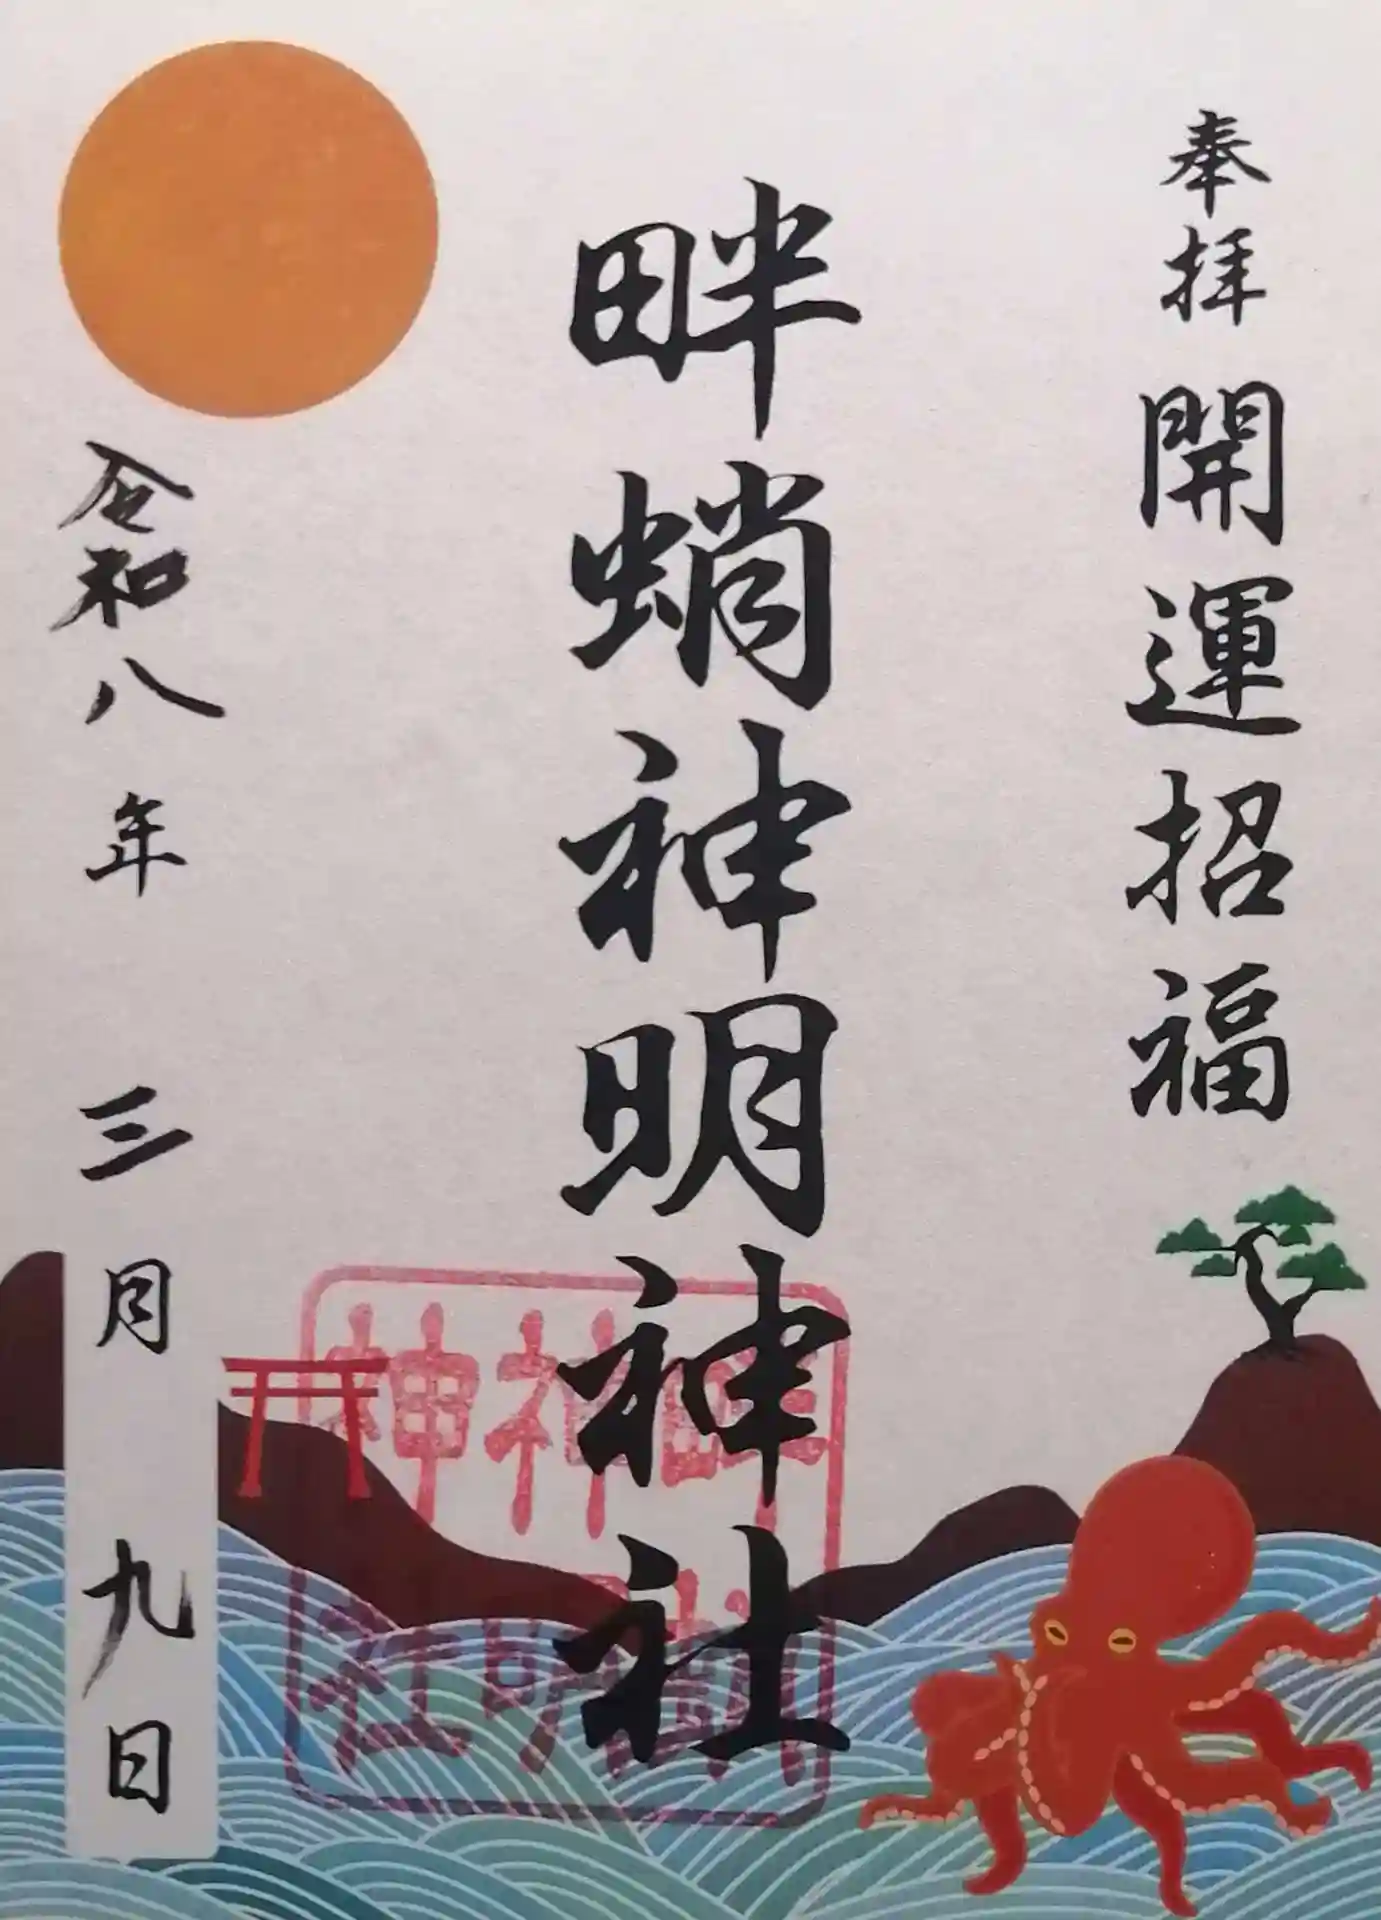 奉拝 開運招福
畔蛸神明神社
令和八年 三月 九日
畔蛸
神明
神社